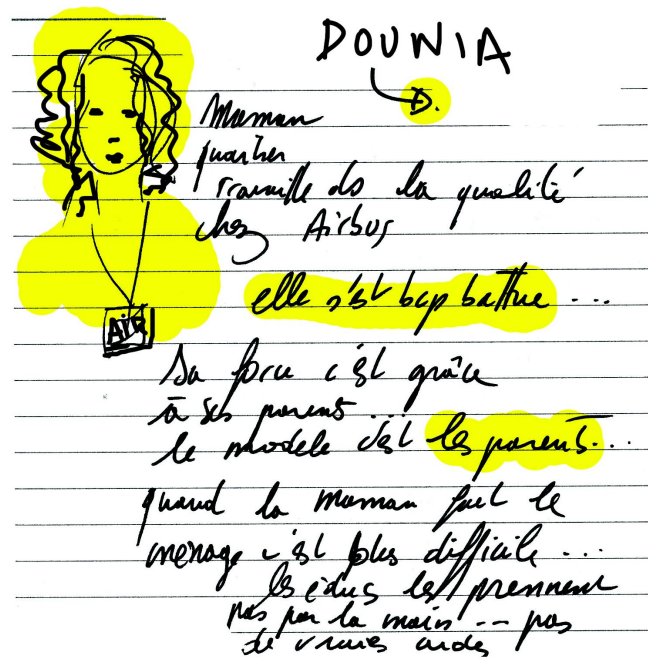 DOUNIA
D.
Maman
quartier
travaille ds la qualité
chez Airbus
AIR
elle s'est bcp battue ...
Sa force c'est grâce
à ses parents ...
le modele c'est les parents...
quand la maman fait le
ménage c'est plus difficile ...
les éducs les prennent
pas par la main -- pas
de vraies aides